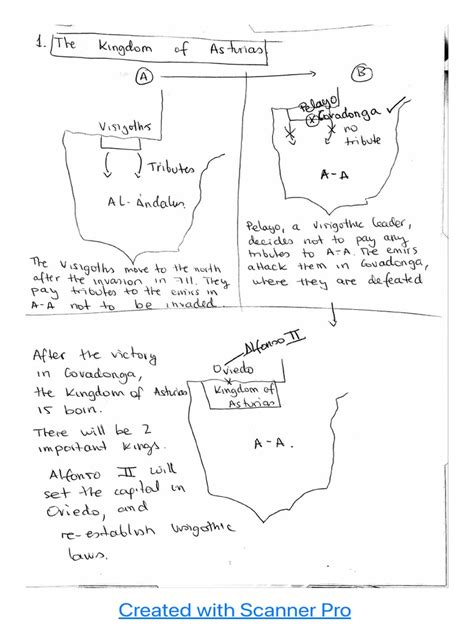 1. The Kingdom of Asturias
A
B
Visigoths
Tributes
AL-Ándalus
Pelayo
Covadonga
no
tribute
A-A
The Visigoths move to the north
after the invasion in 711. They
pay tributes to the emirs in
A-A not to be invaded.
Pelayo, a visigothic leader,
decides not to pay any
tributes to A-A. The emirs
attack them in Covadonga,
where they are defeated
After the victory
in Covadonga,
the Kingdom of Asturias
is born.
There will be 2
important kings.
Alfonso II will
set the capital in
Oviedo, and
re-establish visigothic
laws.
Alfonso II
Oviedo
Kingdom of
Asturias
A-A.
Created with Scanner Pro